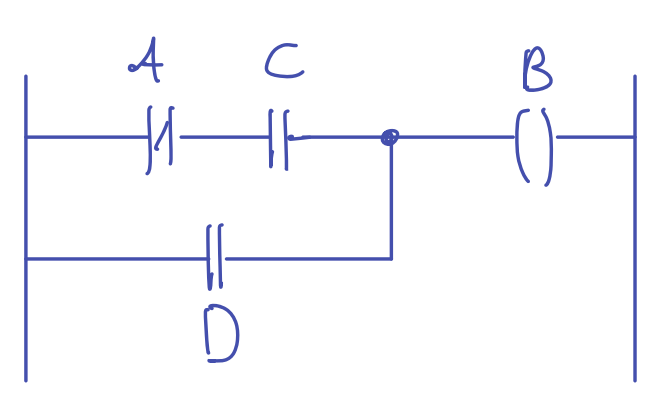 A C B
D